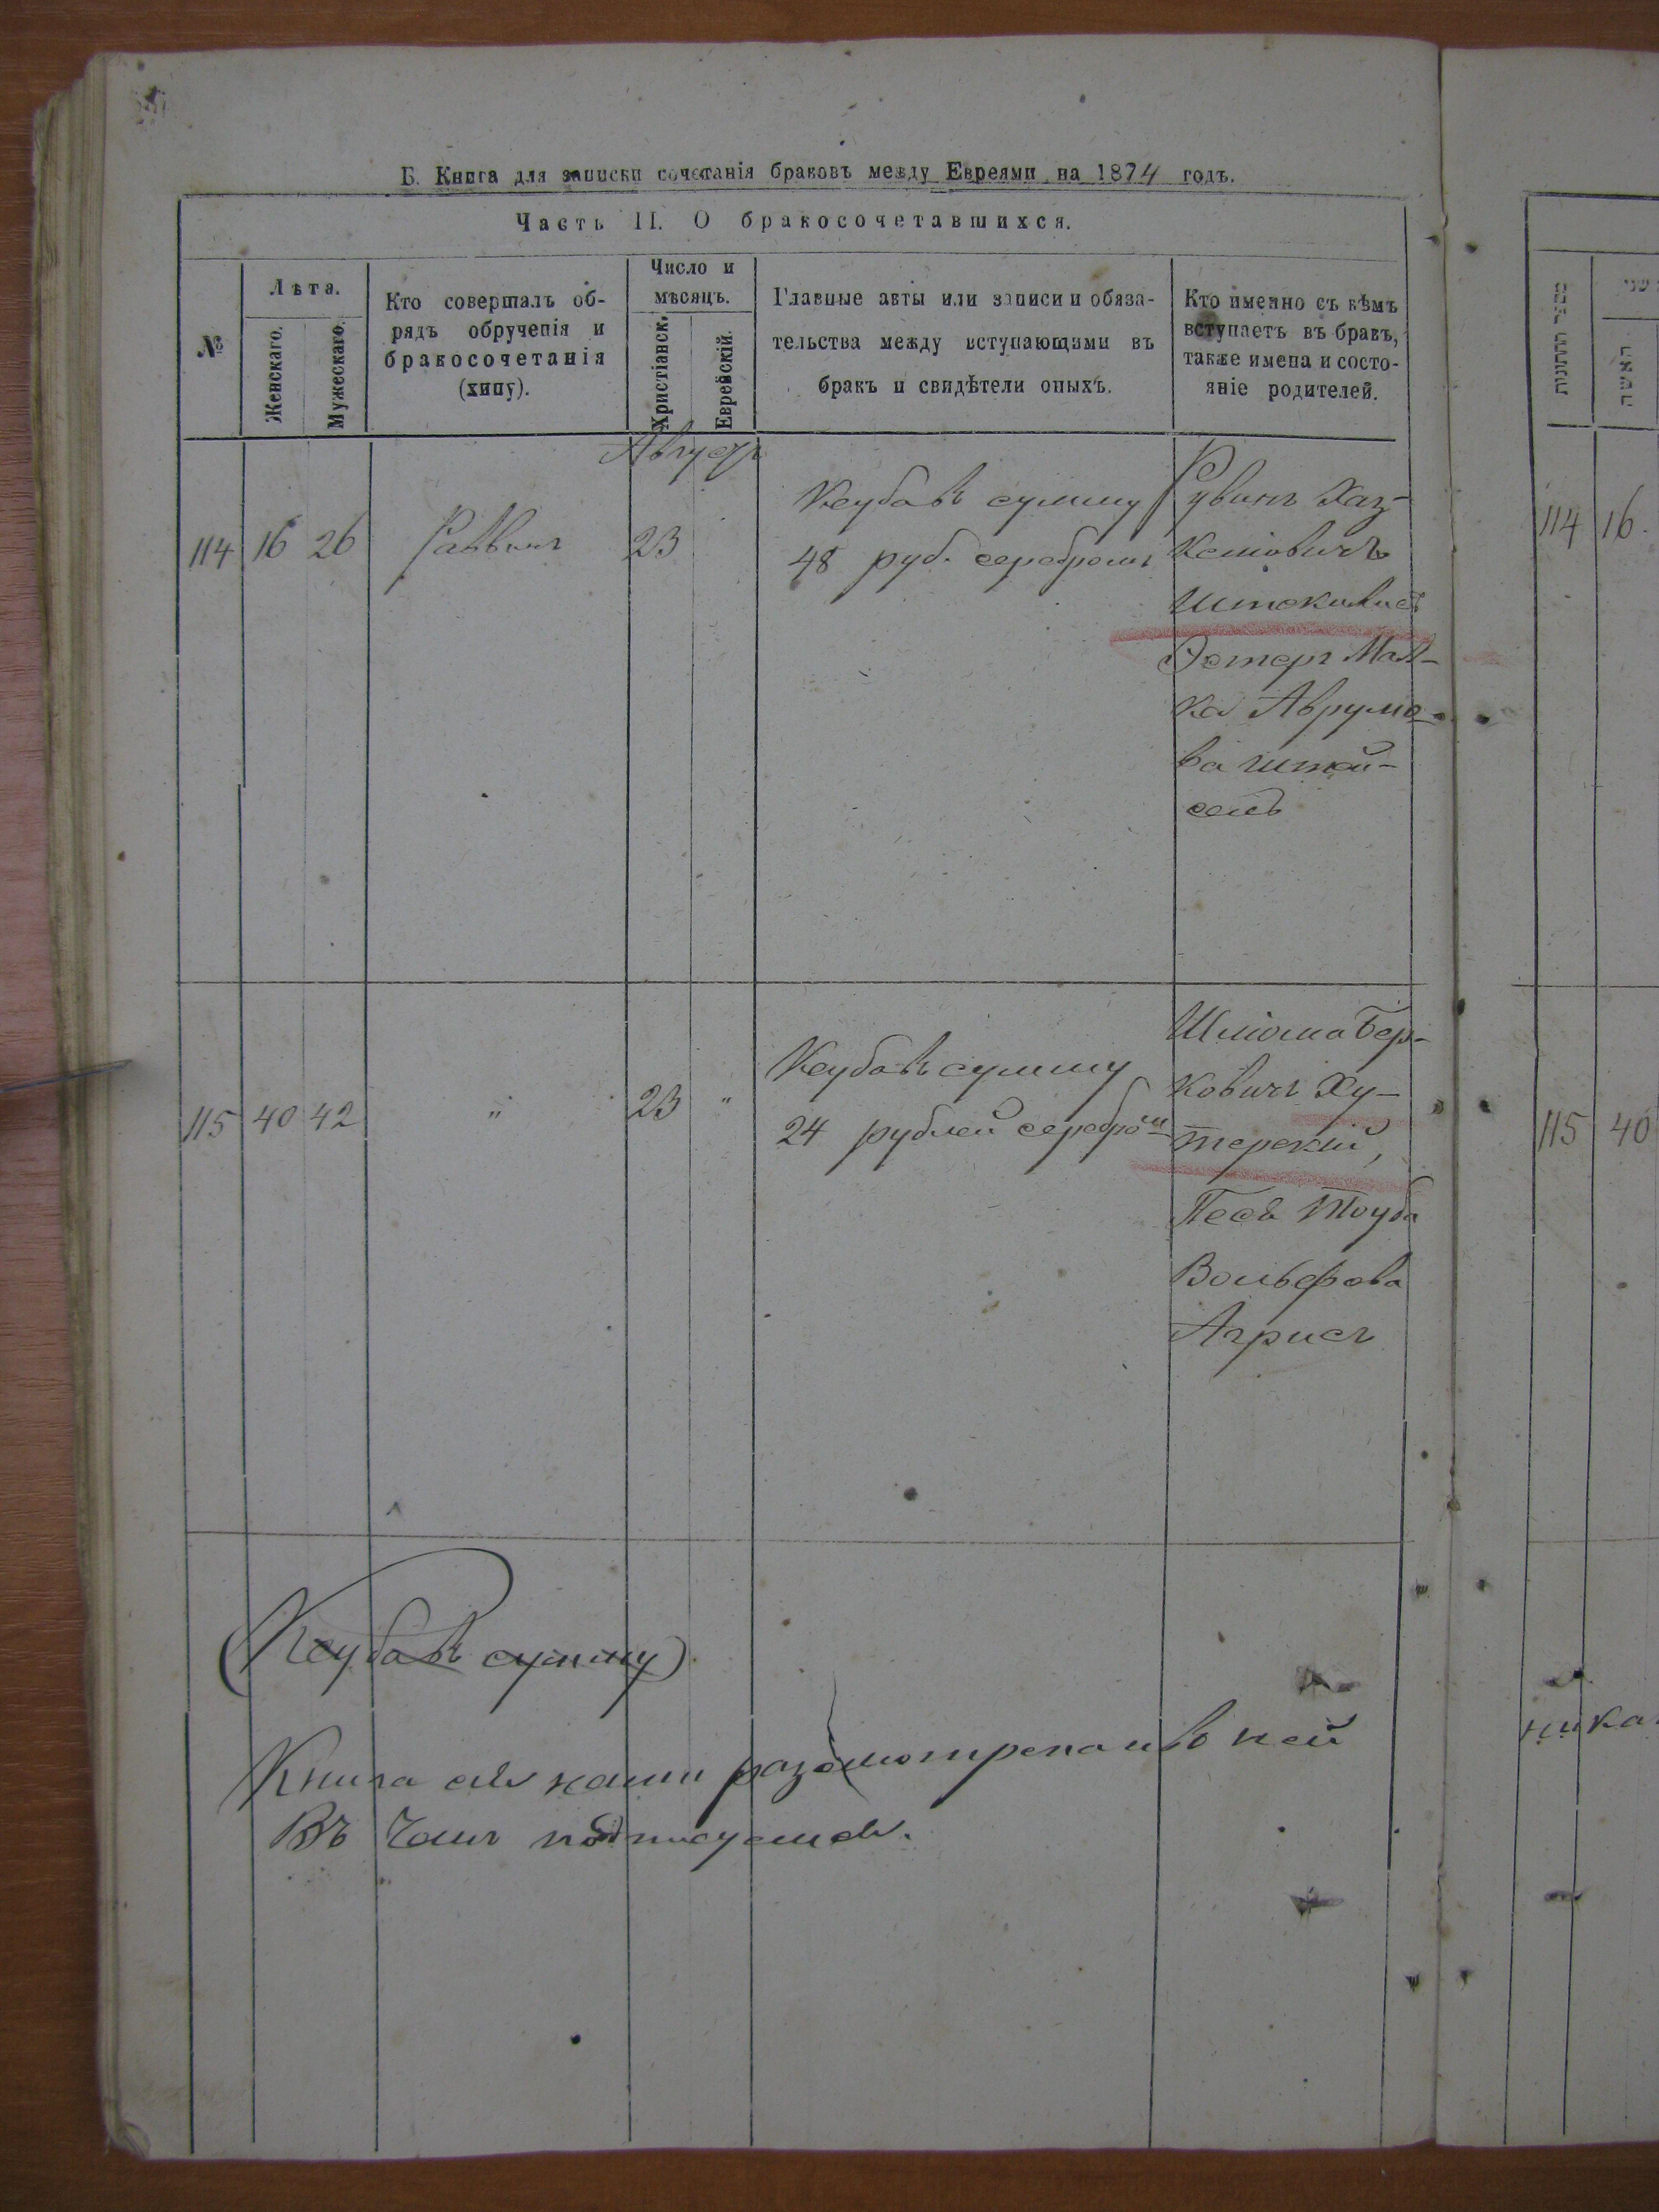 Б. Книга для записки сочетанія браковъ между Евреями на 1874 годъ.
Часть II. О бракосочетавшихся.
№
Лѣта.
Женскаго.
Мужескаго.
Кто совершалъ об-
рядъ обрученія и
бракосочетанія
(хипу).
Число и
мѣсяцъ.
Христіанск.
Еврейскій.
Главные акты или записи и обяза-
тельства между вступающими въ
бракъ и свидѣтели оныхъ.
Кто именно съ кѣмъ
вступаетъ въ бракъ,
также имена и состо-
яніе родителей.
Августъ
114 16 26 Раввинъ 23
Кеуба въ сумму
48 руб. серебромъ
Рувинъ Хаз-
келіовичъ
Эстеръ Мал-
ка Аврумо-
ва Штей-
115 40 42 " 23 "
Кеуба въ сумму
24 рублей серебромъ
Шліома Бер-
ковичъ Ху-
терскій,
Песя Тауба
Вольфова
Агрисъ
(Кеуба въ сумму)
Книга сія нами разсмотрена и въ ней
Въ чемъ подписуемся.
מספר החתונות
האשה
114 16.
115 40
ника